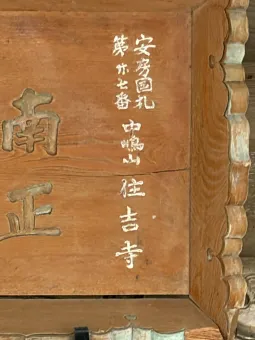 安房国札
第廿七番
中嶋山 住吉寺
南正